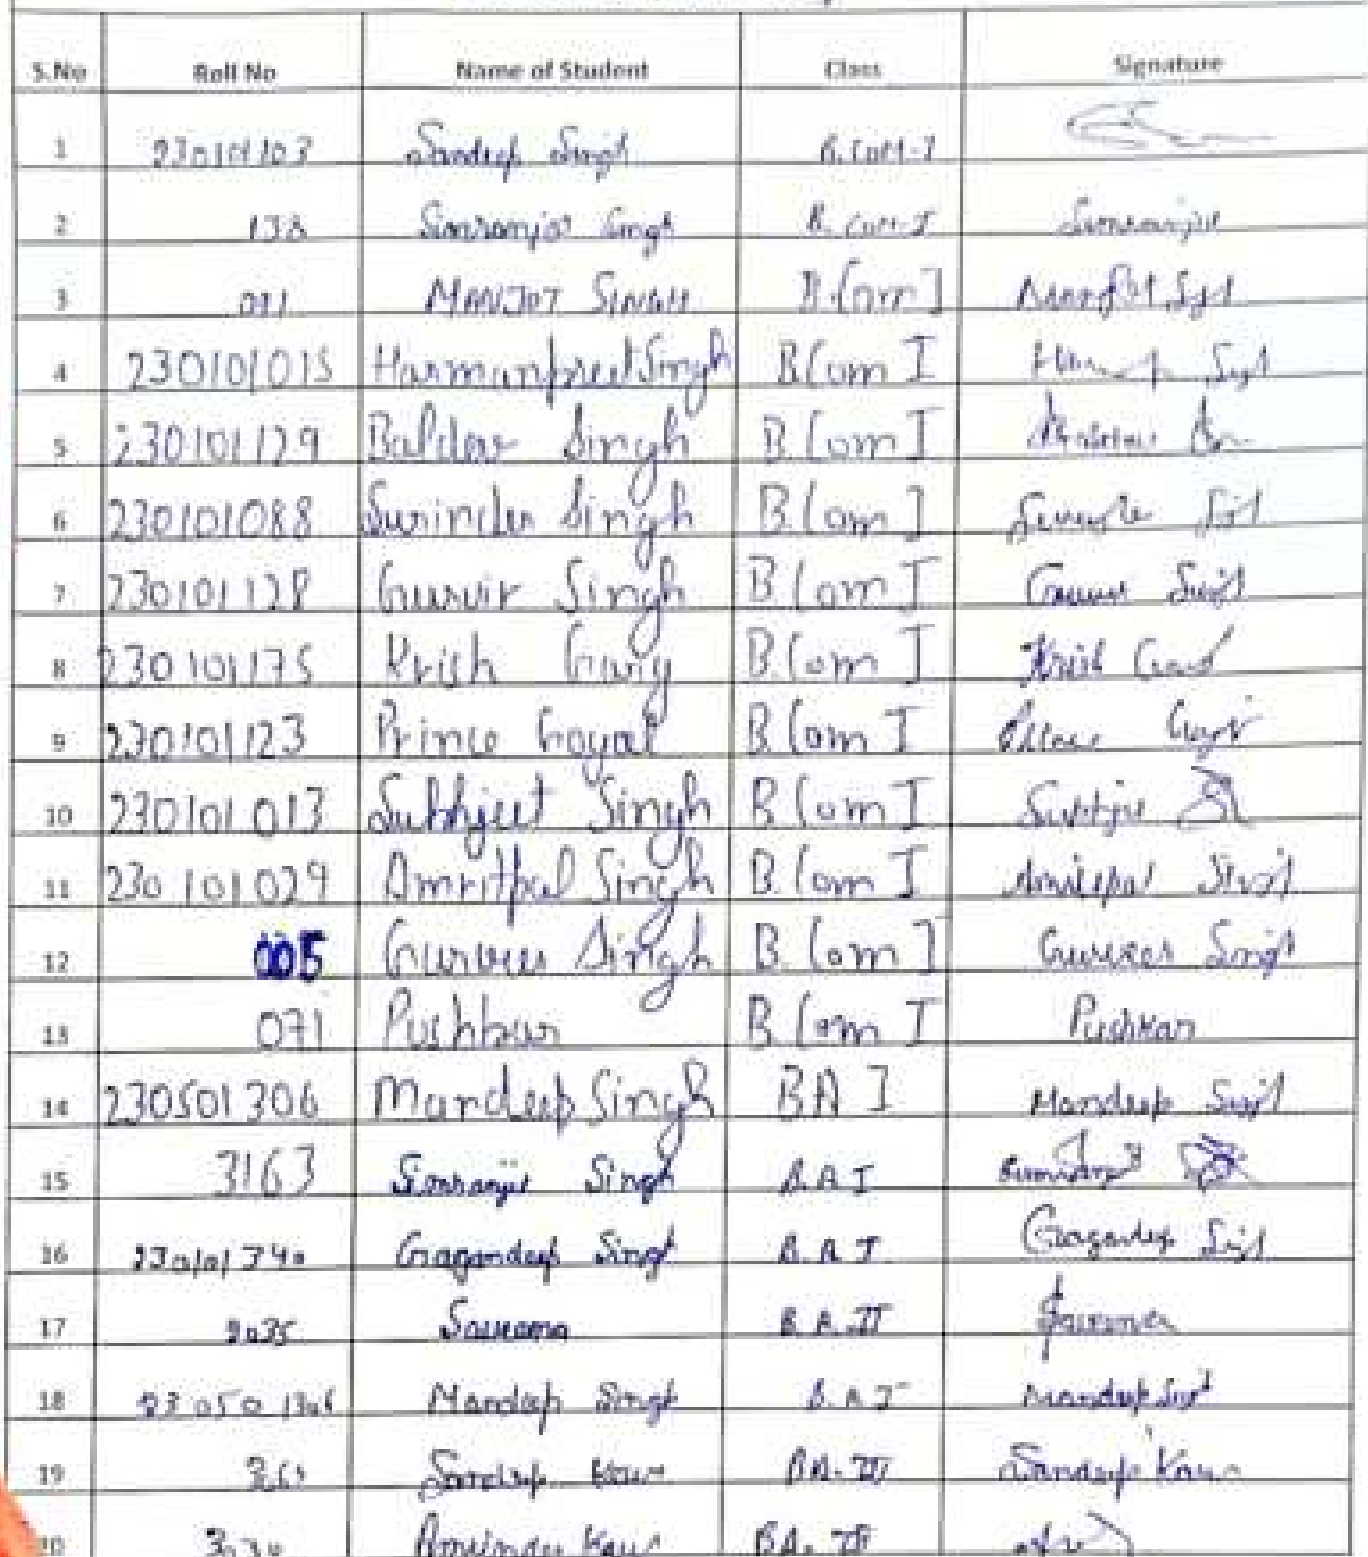 S.No Roll No Name of Student Class Signature
1 230101103 Sandeep Singh B.COM-I
2 138 Simranjot Singh B.COM-I Simranjit
3 011 MANJOT SINGH B.Com I Manjot Singh
4 230101015 Harmanpreet Singh B.Com I
5 230101129 Baldev Singh B.Com I
6 230101088 Surinder Singh B.Com I
7 230101128 Gurvir Singh B.Com I Singh
8 230101175 Krish Garg B.Com I Krish Garg
9 230101123 Prince Goyal B.Com I
10 230101013 Sukhjeet Singh B.Com I
11 230101029 Amritpal Singh B.Com I Amritpal Singh
12 005 Gurveer Singh B.Com I Gurveer Singh
13 071 Pushkar B.Com I Pushkar
14 230501306 Mandeep Singh BA I Mandeep Singh
15 3163 Simranjit Singh B.A I
16 230101340 Gagandeep Singh B.A I Gagandeep Singh
17 B.A.II
18 Mandeep Singh B.A I Mandeep Singh
19 Sandeep Kaur BA.III Sandeep Kaur
20 Kaur BA.III